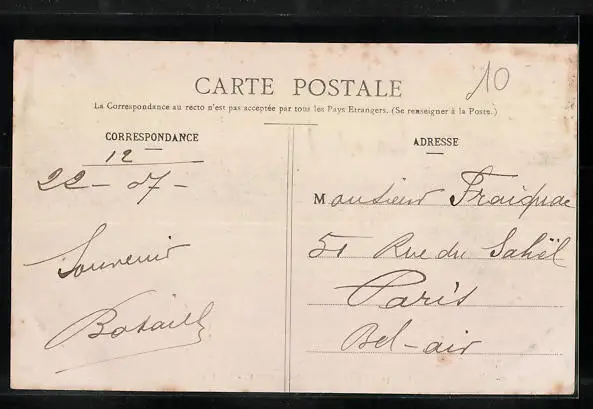 10
CARTE POSTALE
La Correspondance au recto n'est pas acceptée par tous les Pays Etrangers. (Se renseigner à la Poste.)
CORRESPONDANCE
12
22 - 07 -
Souvenir
ADRESSE
Monsieur
51 Rue du Sahël
Paris
Bel-air